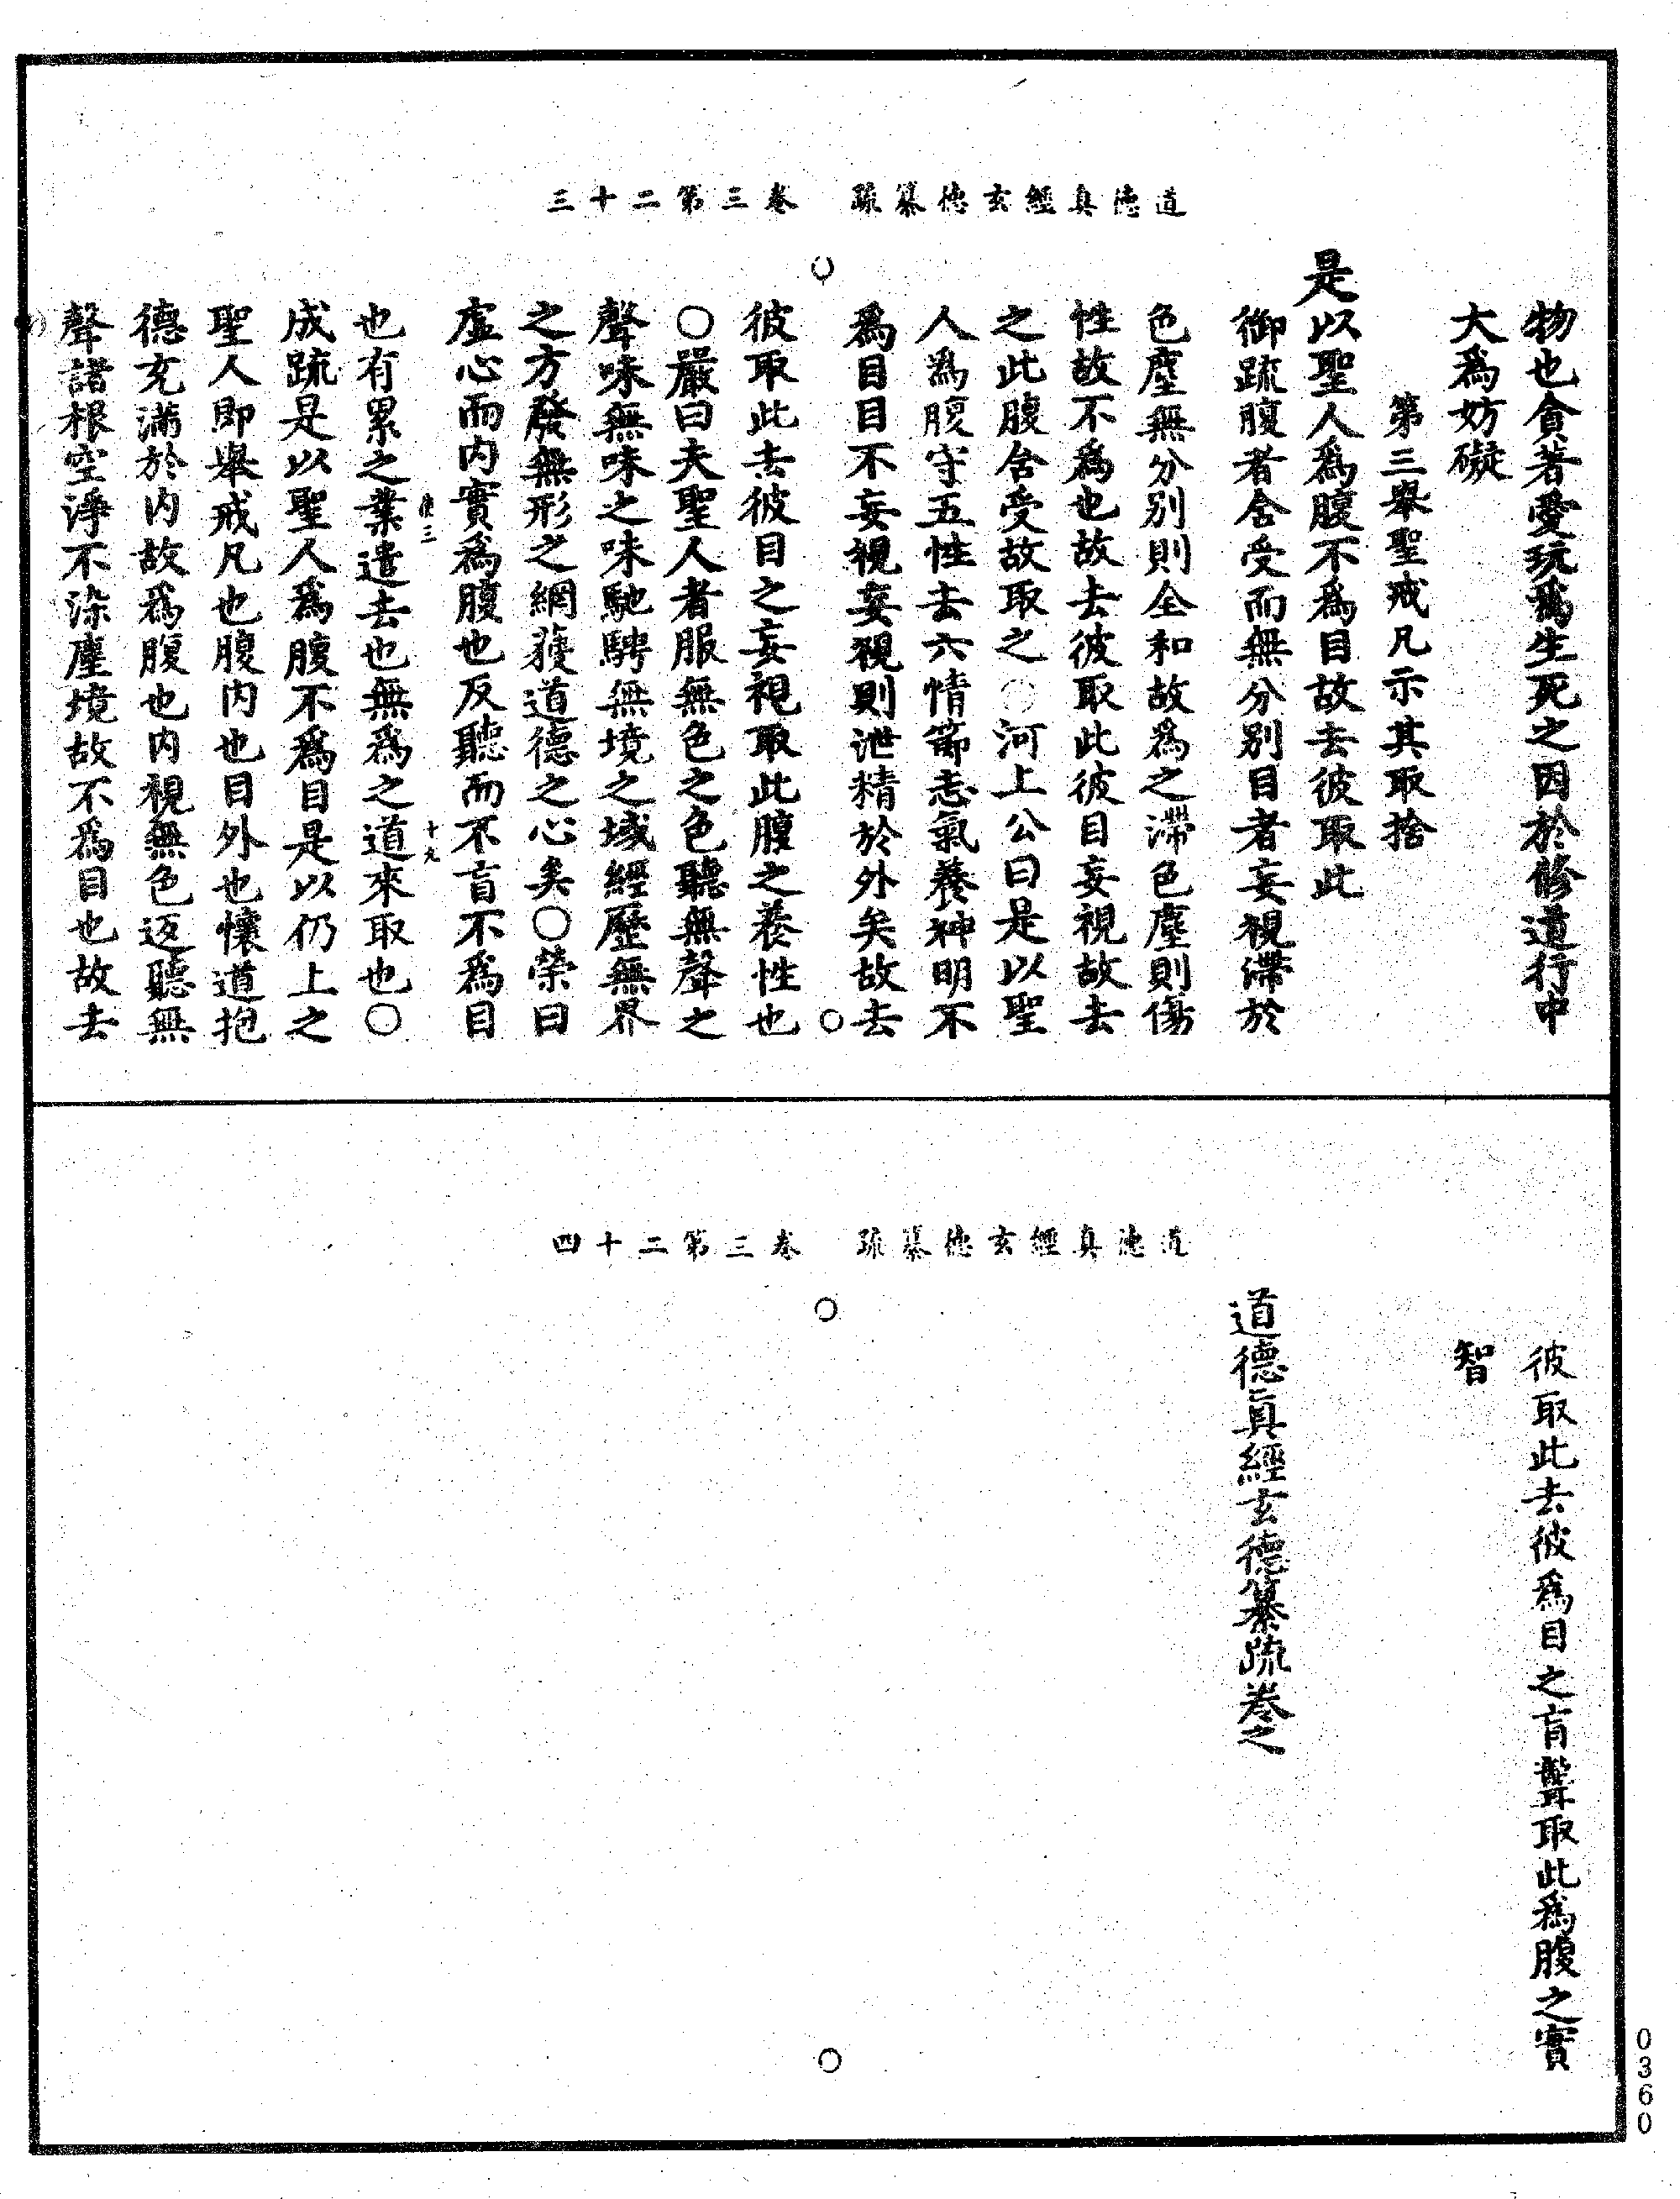 道德真經玄德纂疏　卷三第二十三
物也貪著愛玩爲生死之因於修道行中
大爲妨礙
第三舉聖戒凡示其取捨
是以聖人爲腹不爲目故去彼取此
御疏腹者含受而無分別目者妄視滯於
色塵無分別則全和故爲之滯色塵則傷
性故不爲也故去彼取此彼目妄視故去
之此腹含受故取之○河上公曰是以聖
人爲腹守五性去六情節志氣養神明不
爲目目不妄視妄視則泄精於外矣故去
彼取此去彼目之妄視取此腹之養性也
○嚴曰夫聖人者服無色之色聽無聲之
聲味無味之味馳騁無境之域經歷無界
之方發無形之網獲道德之心矣○榮曰
虛心而內實爲腹也反聽而不盲不爲目
也有累之業遣去也無爲之道來取也○
成疏是以聖人爲腹不爲目是以仍上之
聖人即舉戒凡也腹內也目外也懷道抱
德充滿於內故爲腹也內視無色返聽無
聲諸根空淨不染塵境故不爲目也故去
道德真經玄德纂疏　卷三第二十四
彼取此去彼爲目之盲聾取此爲腹之實
智
道德真經玄德纂疏卷之
0360